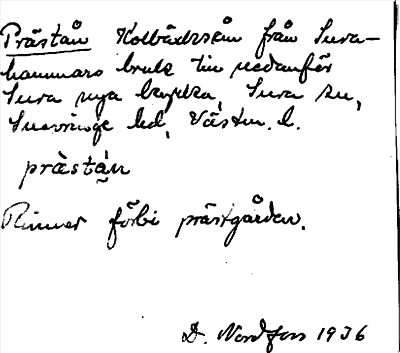 Prästån Kolbäcksån från Sura-
hammars bruk till nedanför
Sura nya kyrka, Sura sn,
Snevringe hd, Västm. l.
prästån
Rinner förbi prästgården.
D. Nordfors 1936